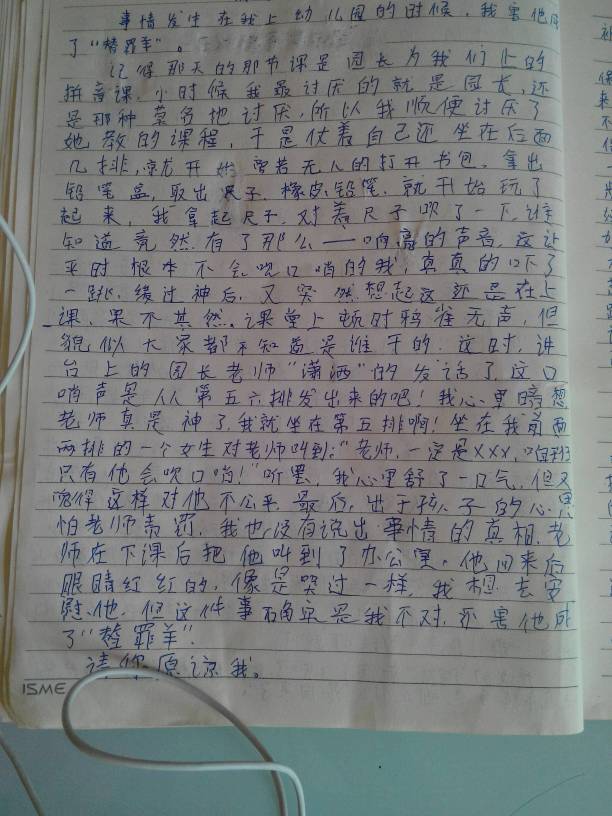 事情发生在我上幼儿园的时候,我害他成
了“替罪羊”。
记得那天的那节课是园长为我们上的
拼音课,小时候我最讨厌的就是园长,还
是那种莫名地讨厌,所以我顺便讨厌了
她教的课程,于是仗着自己还坐在后面
几排,就开始旁若无人的打开书包,拿出
铅笔盒,取出尺子、橡皮、铅笔,就开始玩了
起来,我拿起尺子,对着尺子吹了一下,谁
知道竟然有了那么——响亮的声音,这让
平时根本不会吹口哨的我,真真的吓了
一跳,缓过神后,又突然想起这还是在上
课,果不其然,课堂上顿时鸦雀无声,但
貌似大家都不知道是谁干的,这时,讲
台上的园长老师“潇洒”的发话了,这口
哨声是从第五六排发出来的吧!我心里暗想
老师真是神了,我就坐在第五排啊!坐在我前面
两排的一个女生对老师叫到:“老师,一定是XXX,咱班
只有他会吹口哨!”听罢,我心里舒了一口气,但又
觉得这样对他不公平,最后,出于孩子的心思
怕老师责罚,我也没有说出事情的真相,老
师在下课后把他叫到了办公室,他回来后
眼睛红红的,像是哭过一样,我想去安
慰他,但这件事确实是我不对,还害他成
了“替罪羊”
请你原谅我。
ISME